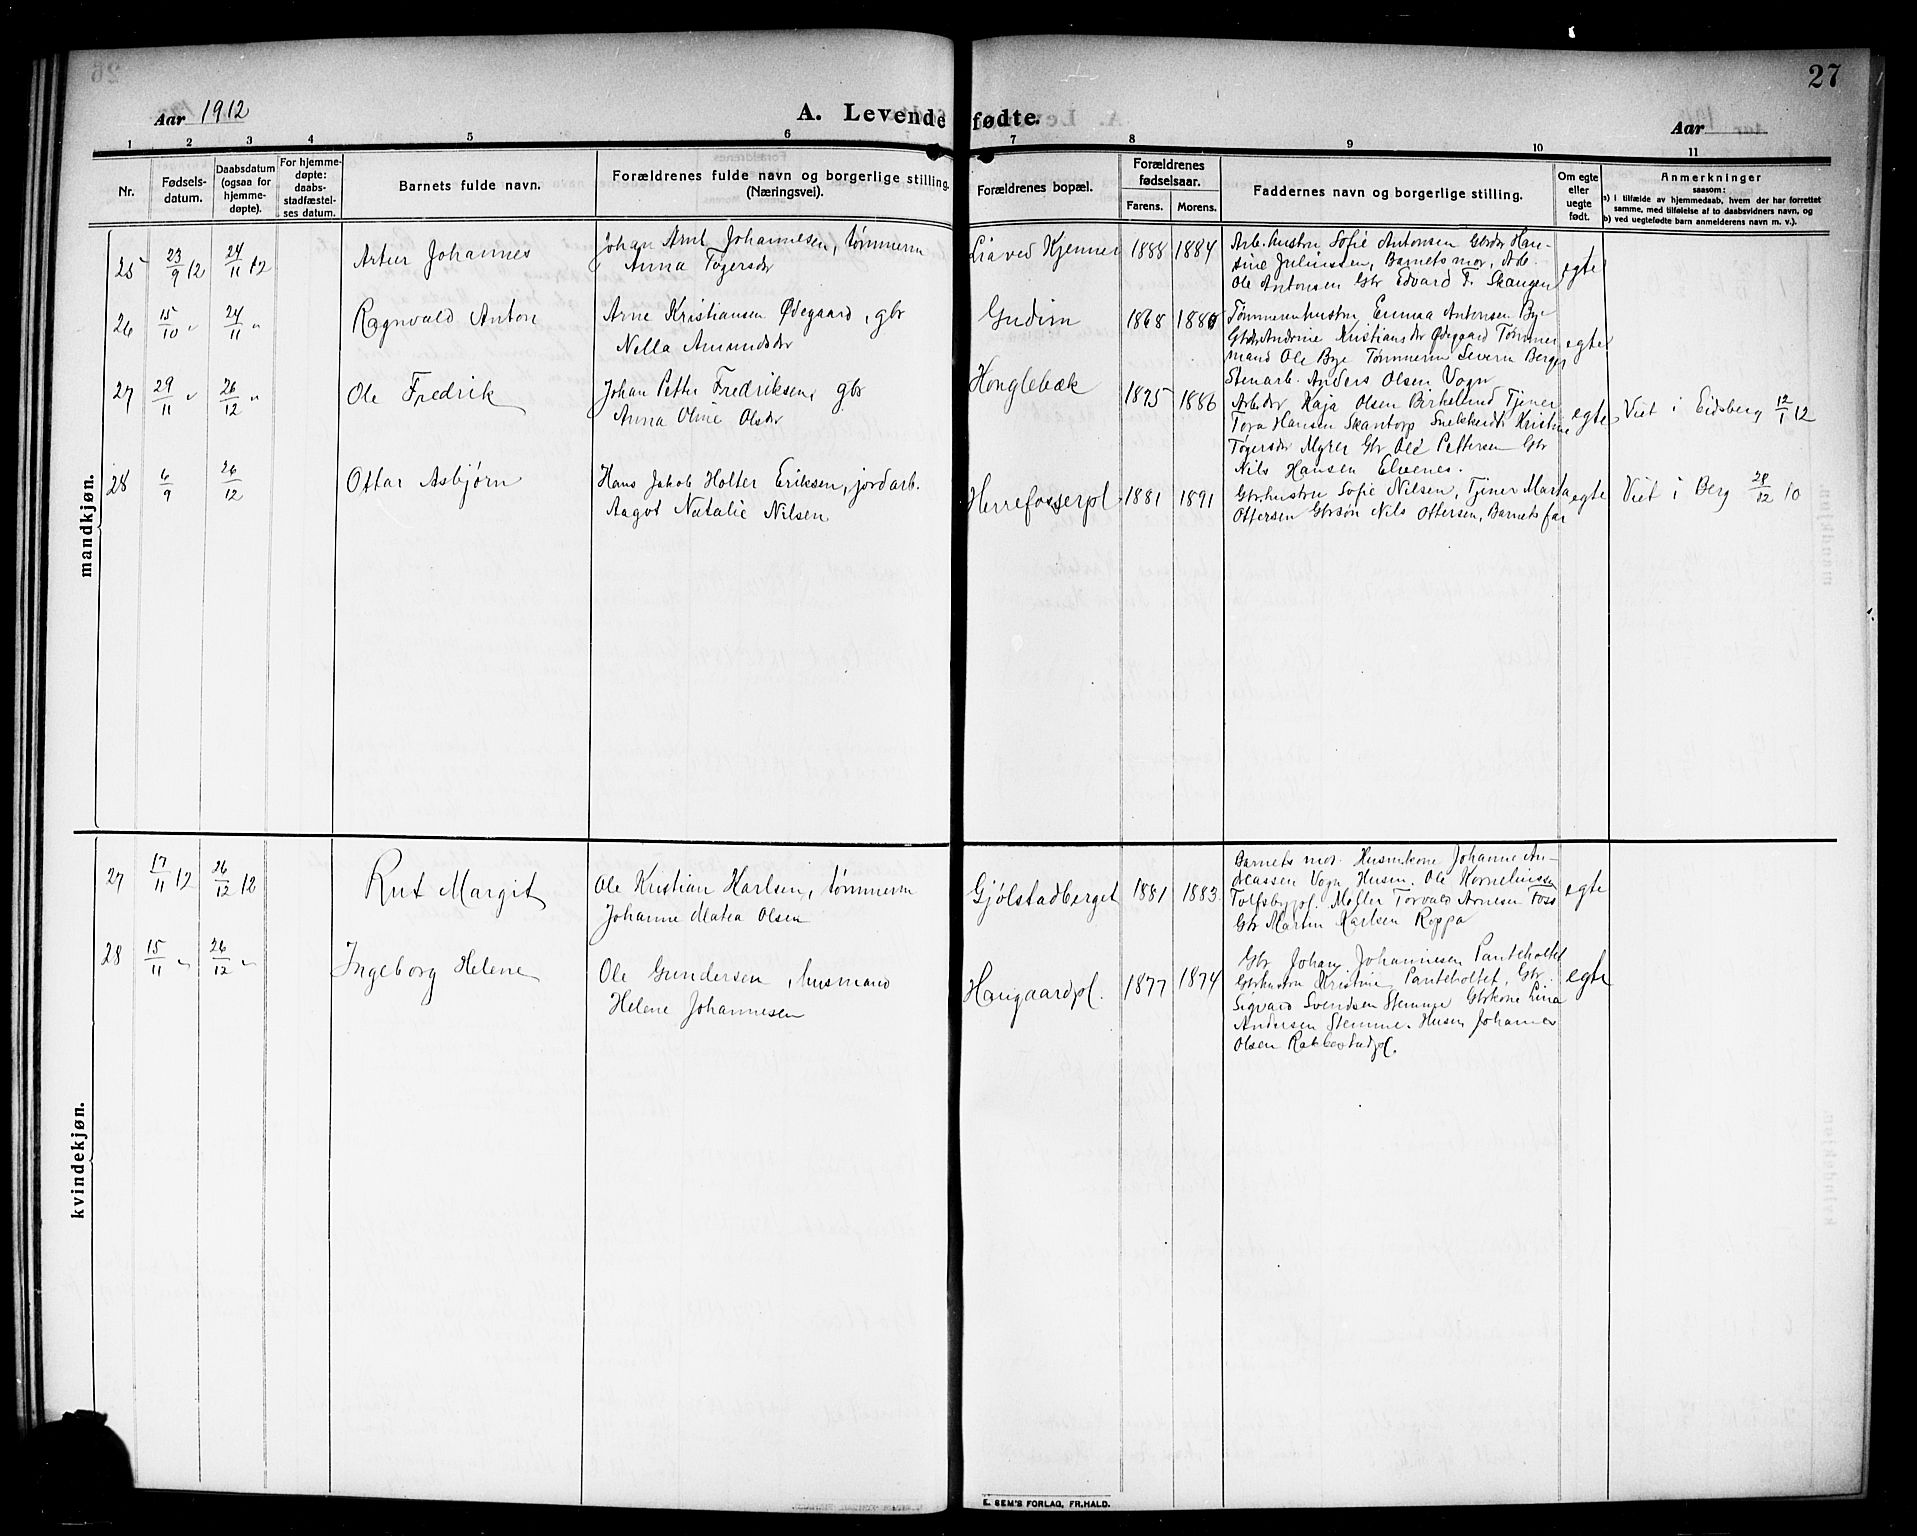 27
Aar 1912
A. Levende fødte.
Aar
1 2 3 4 5 6 7 8 9 10 11
Nr.
Fødsels-
datum.
Daabsdatum
(ogsaa for
hjemme-
døpte).
For hjemme-
døpte:
daabs-
stadfæstel-
ses datum.
Barnets fulde navn.
Forældrenes fulde navn og borgerlige stilling.
(Næringsvei).
Forældrenes bopæl.
Forældrenes
fødselsaar.
Farens. Morens.
Faddernes navn og borgerlige stilling.
Om egte
eller
uegte
født.
Anmerkninger
saasom:
a) i tilfælde av hjemmedaab, hvem der har forrettet
samme, med tilføielse af to daabsvidners navn, og
b) ved uegtefødte barn anmelderens navn m. v.).
mandkjøn.
25 23/9 12 24/11 12
Artur Johannes
Johan Arnt Johannesen, tømmerm
Anna Tøgersdr
Lia ved Kjenner 1888 1884
Arb.hustru Sofie Antonsen Gbrdr Han-
sine Juliussen, Barnets mor, Arb.
Ole Antonsen Gbr Edvard F. Skaugen
egte
26 15/10 " 24/11 "
Ragnvald Anton
Arne Kristiansen Ødegaard, gbr
Nella Amundsdr
Gudim 1868
Tømmermhustru Emma Antonsen Bye
Gbrdr Andrine Kristiansdr Ødegaard Tømmer
mand Ole Bye Tømmerm Severin Berger
Stenarb. Anders Olsen Vogn
egte
27 29/11 " 26/12 "
Ole Fredrik
Johan Petter Fredriksen, gbr
Anna Oline Olsdr
Honglebæk 1885 1886
Arbdr Kaja Olsen Birkelund Tjener
Tora Hansen Skantorp Snekkerdr Kristine
Tøgersdr Myrer Gbr Ole Pettersen Gbr
Nils Hansen Elvenes.
egte
Viet i Eidsberg 12/1 12
28 6/9 26/12
Ottar Asbjørn
Hans Jakob Holter Eriksen, jordarb.
Aagot Natalie Nilsen
Herrefosserpl 1881 1891
Gbrhustru Sofie Nilsen, Tjener Marta
Ottersen Gbrsøn Nils Ottersen, Barnets far
egte
Viet i Berg 28/12 10
kvindekjøn.
27 17/11 12 26/12 12
Rut Margit
Ole Kristian Karlsen, tømmerm
Johanne Matea Olsen
Gjølstadberget 1881 1883
Barnets mor. Husmkone Johanne An-
dreassen Vogn Husm. Ole Korneliussen
Tolfsbypl. Møller Torvald Arnesen Foss
Gbr Martin Karlsen Roppa
egte
28 15/11 " 26/12 "
Ingeborg Helene
Ole Gundersen, husmand
Helene Johannesen
Haugaardpl. 1877 1874
Gbr Johan Johannesen Panteholtet
Gbrhustru Kristine Panteholtet, Gbr.
Sigvard Svendsen Stemme Gbrkone Lina
Andersen Stemme. Husm Johannes
Olsen Rakkestadpl.
egte
E. SEM'S FORLAG, FR.HALD.